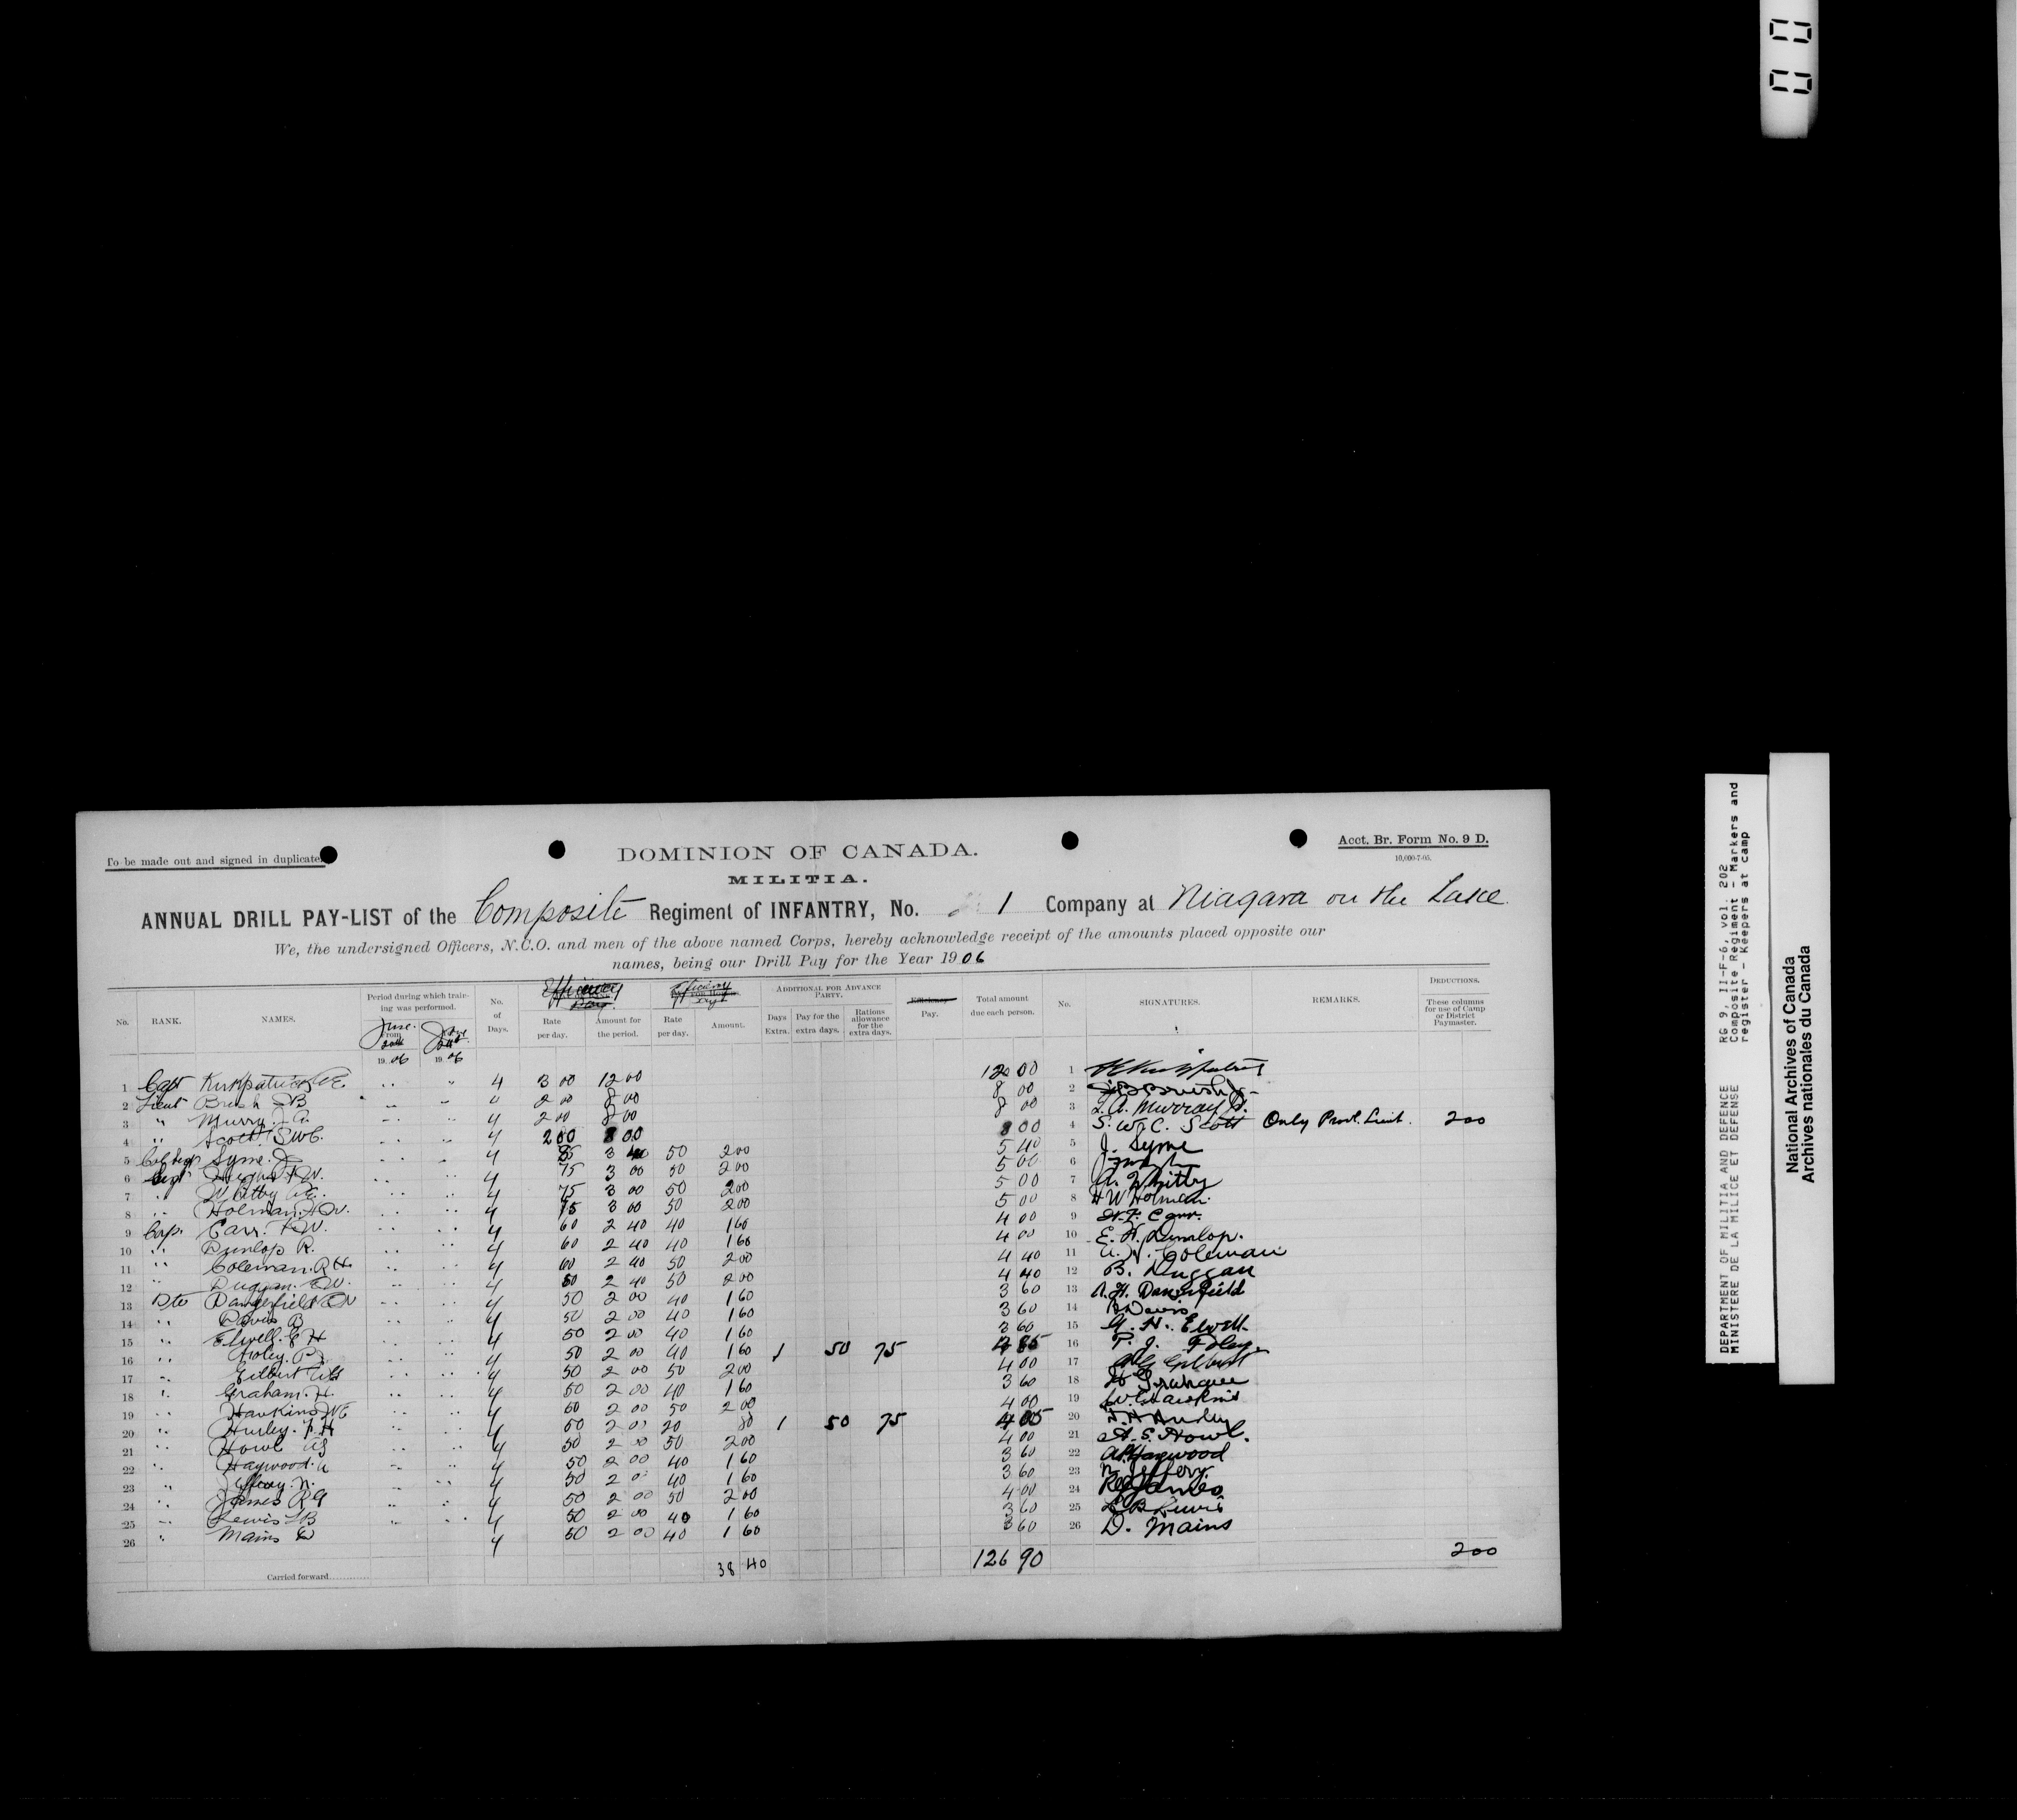 To be made out and signed in duplicate.
DOMINION OF CANADA.
Acct. Br. Form No. 9 D.
10,000-7-05.
MILITIA.
ANNUAL DRILL PAY-LIST of the Composite Regiment of INFANTRY, No. 1 Company at Niagara on the Lake
We, the undersigned Officers, N.C.O. and men of the above named Corps, hereby acknowledge receipt of the amounts placed opposite our
names, being our Drill Pay for the Year 1906
No. RANK. NAMES. Period during which training was performed. June From 1906 1906 No. of Days. Efficiency Rate per day. Amount for the period. Efficiency Rate per day. Amount. ADDITIONAL FOR ADVANCE PARTY. Days Extra. Pay for the extra days. Rations allowance for the extra days. Efficiency Pay. Total amount due each person. No. SIGNATURES. REMARKS. DEDUCTIONS. These columns for use of Camp or District Paymaster.
1 Capt Kirkpatrick 4 3 00 12 00 12 00 1
2 Lieut Brush JB 2 00 8 00 8 00 2
3 " Murry 4 2 00 8 00 8 00 3 Murray
4 " Scott SWC. 4 2 00 8 00 8 00 4 S. W. C. Scott Only Provl. Lieut. 2 00
5 Col Sergt Syme. J 4 85 3 40 50 2 00 5 40 5 J. Syme
6 Sergt 4 75 3 00 50 2 00 5 00 6
7 " Whitby 4 75 3 00 50 2 00 5 00 7 Whitby
8 " Holman. H.W. 4 75 3 00 50 2 00 5 00 8 H W Holman.
9 Corp. Carr. 4 60 2 40 40 1 60 4 00 9 Carr.
10 " Dunlop R. 4 60 2 40 40 1 60 4 00 10 E. H. Dunlop.
11 " Coleman. R H. 4 60 2 40 50 2 00 4 40 11 Coleman
12 " Duggan. 4 60 2 40 50 2 00 4 40 12 B. Duggan
13 Pte Dangerfield 4 50 2 00 40 1 60 3 60 13 A. H. Dangerfield
14 " Davis B 4 50 2 00 40 1 60 3 60 14 B Davis
15 " Elwell. E H 4 50 2 00 40 1 60 3 60 15 G. H. Elwell.
16 " Foley. P J 4 50 2 00 40 1 60 1 50 75 4 85 16 P. J. Foley.
17 " Gilbert 4 50 2 00 50 2 00 4 00 17 Gilbert
18 " Graham. H. 4 50 2 00 40 1 60 3 60 18 H Graham
19 " Hawkins WE 4 50 2 00 50 2 00 4 00 19 W. E. Hawkins
20 " Hurley. F H 4 50 2 00 20 80 1 50 75 4 05 20 F. H Hurley
21 " Howl AS 4 50 2 00 50 2 00 4 00 21 A. S. Howl.
22 " Haywood. 4 50 2 00 40 1 60 3 60 22 Haywood
23 " Jeffery. N. 4 50 2 00 40 1 60 3 60 23 N. Jeffery.
24 " James R G 4 50 2 00 50 2 00 4 00 24 James
25 " Lewis LB 4 50 2 00 40 1 60 3 60 25 L B Lewis
26 " Mains D 4 50 2 00 40 1 60 3 60 26 D. Mains
Carried forward............ 38 40 126 90 2 00
DEPARTMENT OF MILITIA AND DEFENCE
MINISTERE DE LA MILICE ET DEFENSE
RG 9, II-F-6, vol. 202
Composite Regiment - Markers and
register - Keepers at camp
National Archives of Canada
Archives nationales du Canada